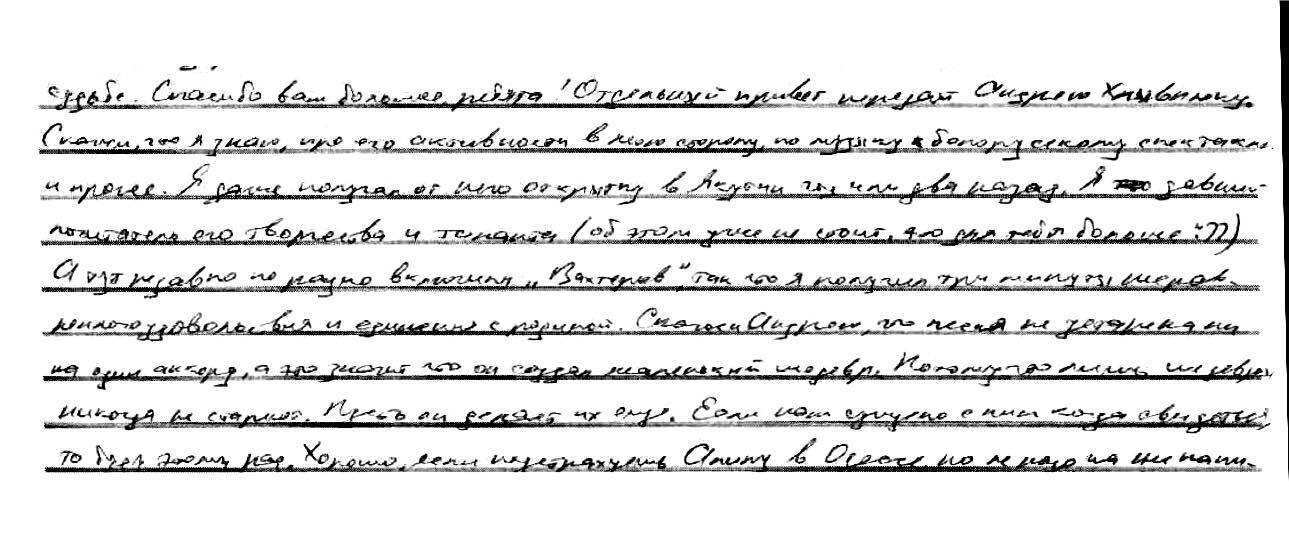 судьбе. Спасибо вам большое, ребята! Отдельный привет передай Андрею Хлывнюку.
Скажи, что я знаю, про его активности в мою сторону, по музыку к белорусскому спектаклю
и прочее. Я даже получал от него открытку в Якутии год или два назад. Я давний
почитатель его творчества и таланта (об этом уже не стоит, это для тебя больше :)))
А тут недавно по радио включили „Вахтёров", так что я получил три минуты
удовольствия и единения с родиной. Скажи Андрею, что песня не устарела ни
на один аккорд, а это значит что он создал маленький шедевр. Потому что лишь шедевры
никогда не стареют. Пусть он делает их ещё. Если нам суждено с ним когда свидеться,
то буду этому рад. Хорошо, если подстрахуешь Алину в Одессе, но не надо на них напи-